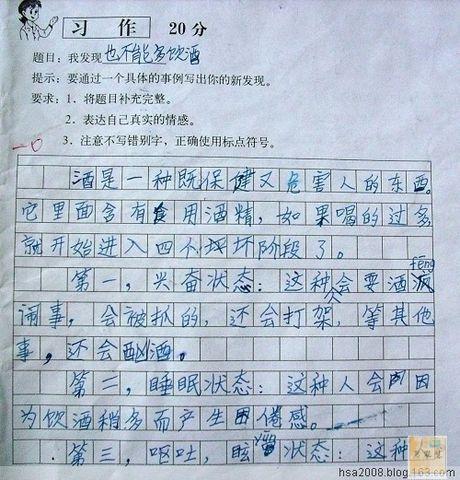 习 作 20分
题目：我发现也不能多饮酒
提示：要通过一个具体的事例写出你的新发现。
要求：1．将题目补充完整。
2．表达自己真实的情感。
3．注意不写错别字，正确使用标点符号。
酒是一种既保健又危害人的东西。
它里面含有食用酒精，如果喝的过多
就开始进入四个坏阶段了。
fēng
第一，兴奋状态：这种人会耍酒疯
闹事，会被抓的，还会打架，等其他
事，还会酗酒。
第二，睡眠状态：这种人会因
为饮酒稍多而产生困倦感。
第三，呕吐，眩晕状态：这种
hsa2008.blog.163.com